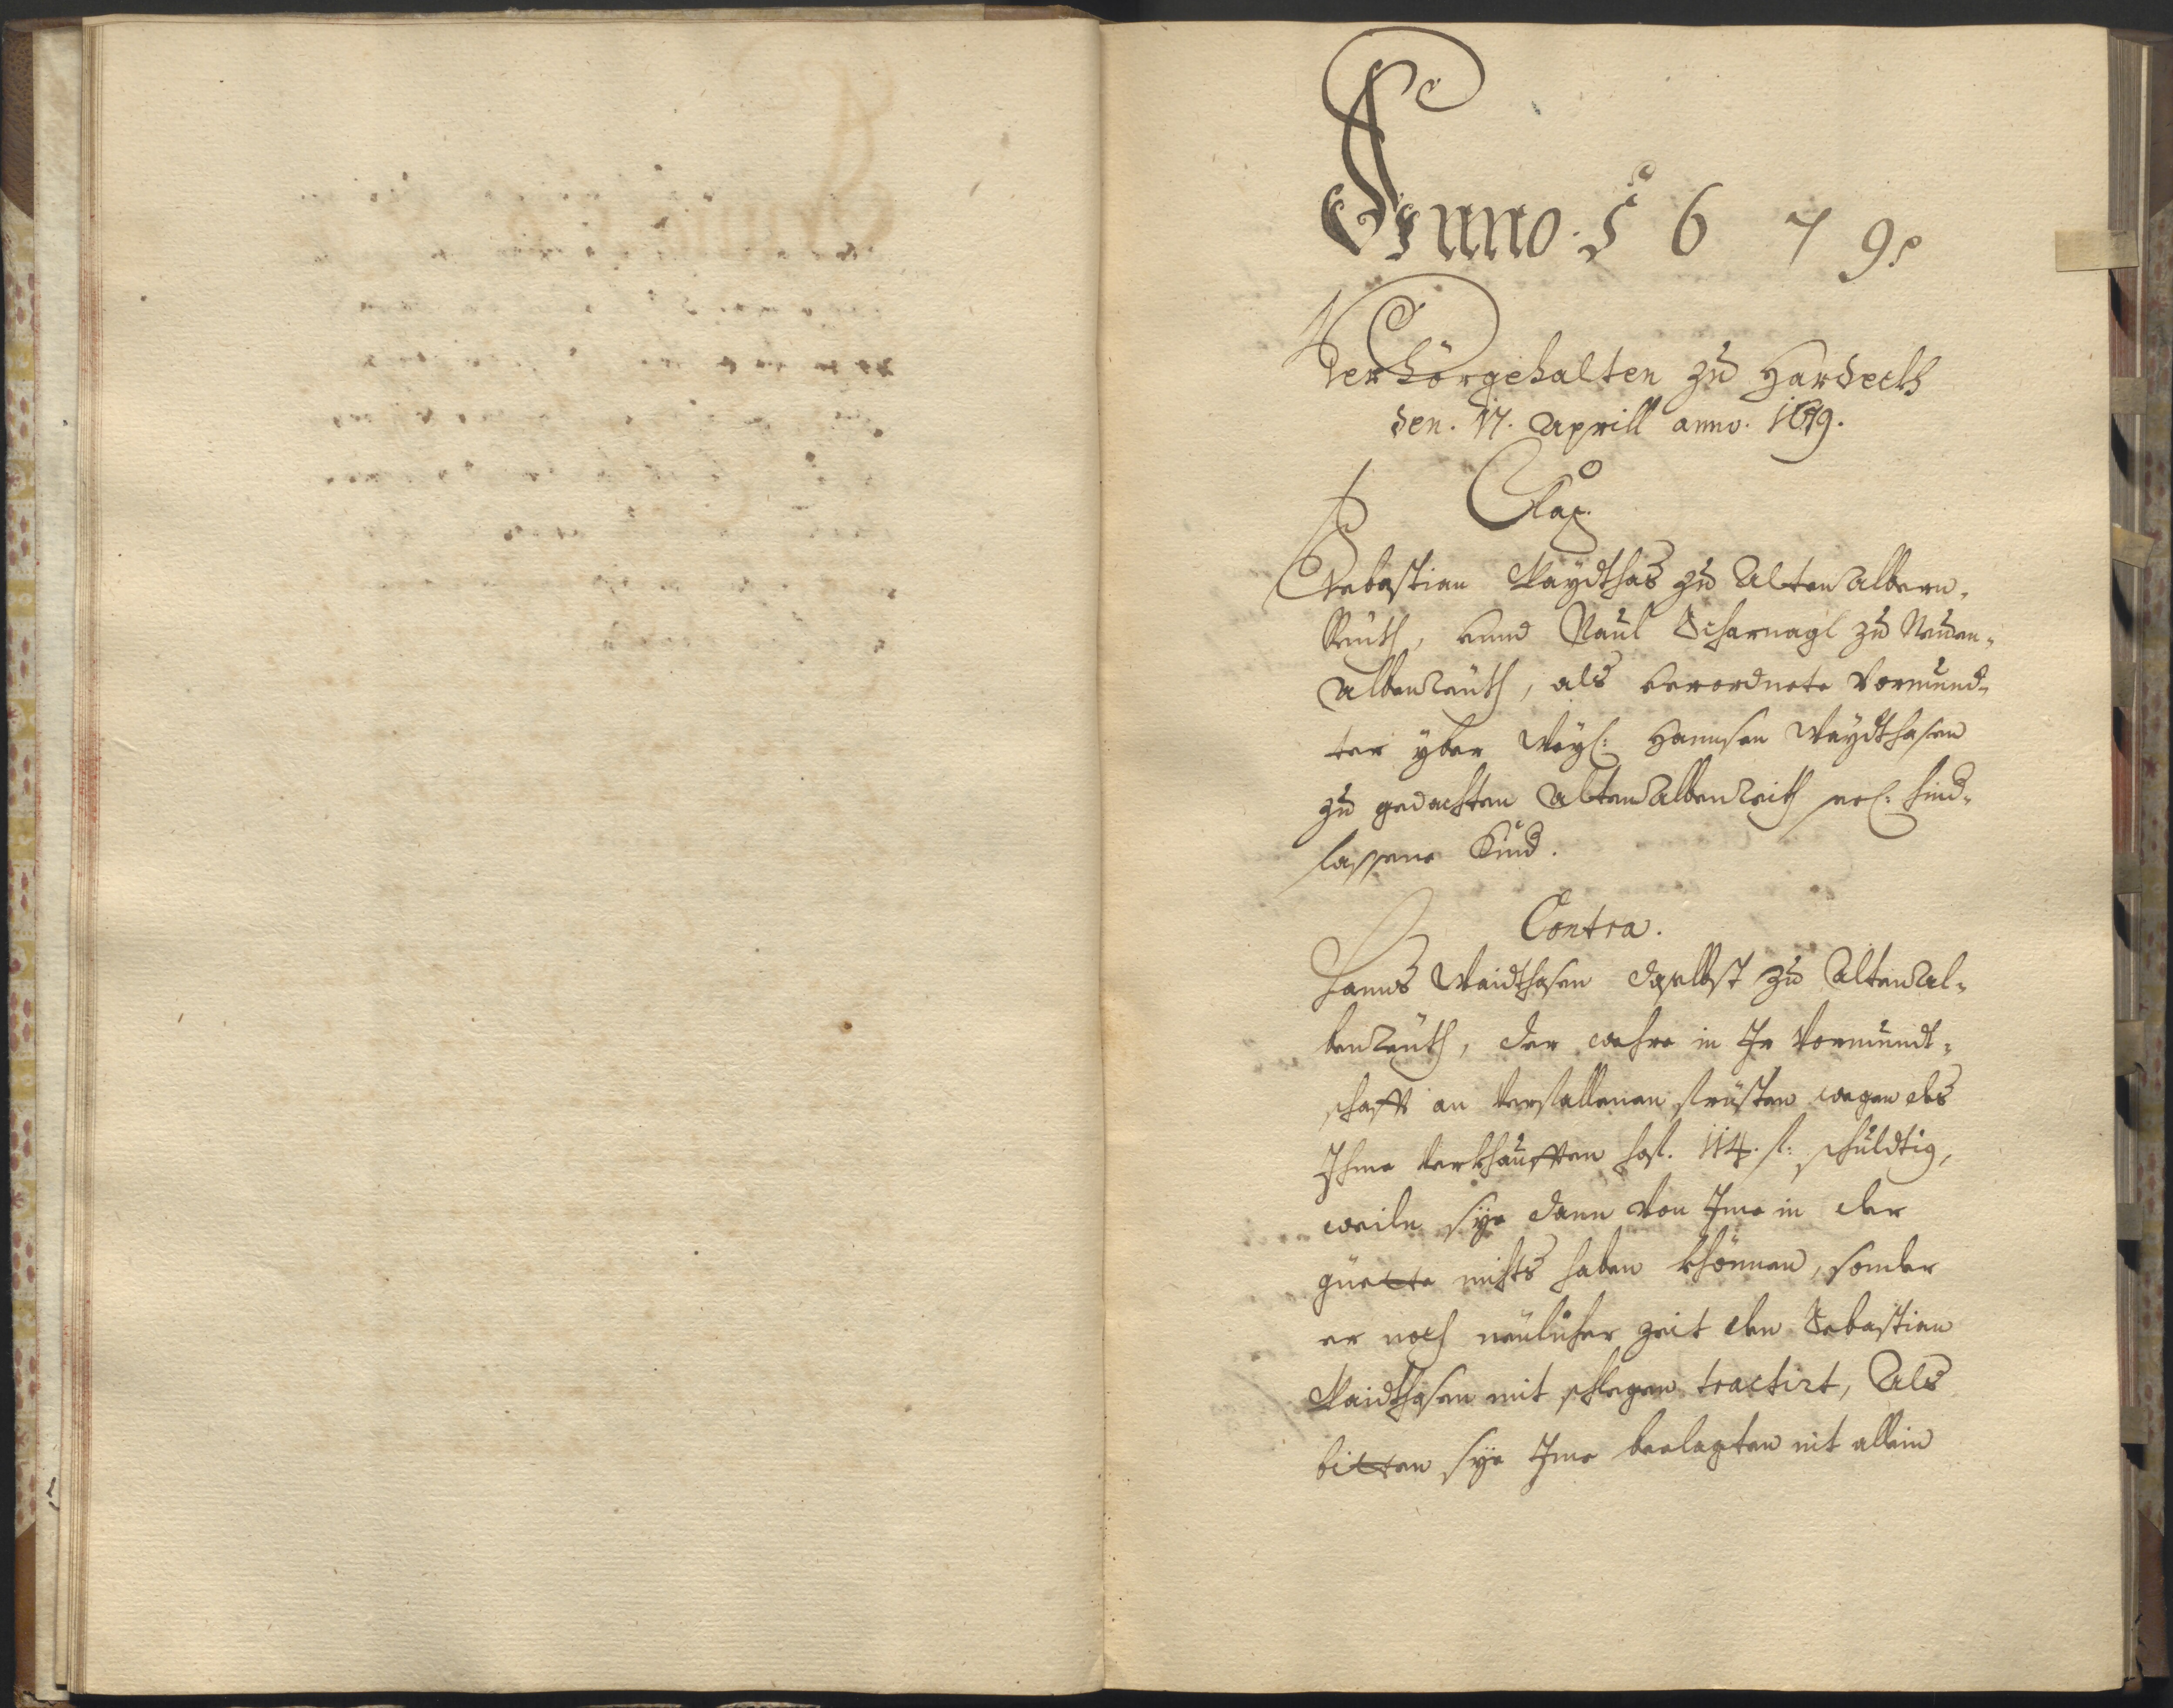 Anno 1679.
Verhör gehalten zu Hardeckh
den. 17. Aprill anno. 1679.
Clag.
Sebastian Maÿdthas zu Altenalbern¬
Reuth, vnnd Paul Scharnagl zu Neuen¬
albenreuth, als verordnete Vormund¬
ter yber Weyl: Hannsen Maÿdthasen
zu gedachten Altenalbenreith seel: hind¬
lassene Kind.
Contra.
Hanns Maidthasen daselbst zu Altenal¬
benreuth, der wehre in Ihr Vormundt¬
schafft an verfallenen fristen wegen des
Ihme verkhaufften hof. 114. fl: schuldtig,
weiln sye dann von Ime in der
güette nichts haben khönnen, sonder
er noch neulicher zeit den Sebastian
Maidthasen mit schlegen tractirt, Als
bitten sye Ime beclagten nit allein